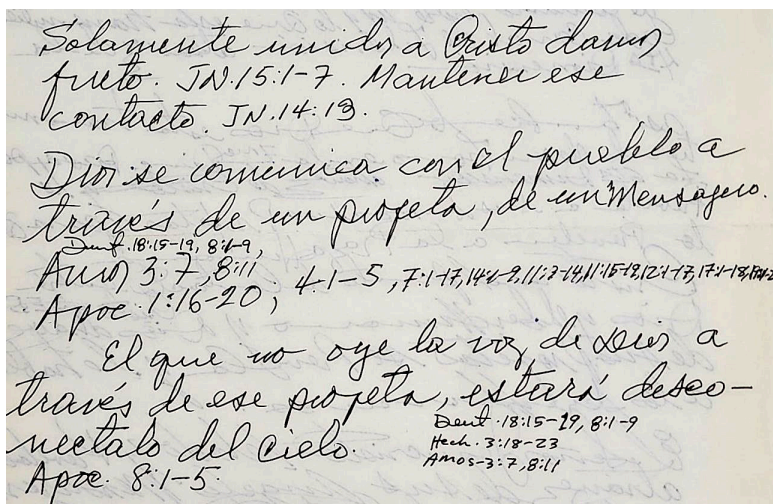 Solamente unidos a Cristo damos
fruto. JN.15:1-7. Mantener ese
contacto. JN.14:13.
Dios se comunica con el pueblo a
través de un profeta, de un Mensagero.
Deut. 18:15-19, 8:1-9,
Amos 3:7, 8:11
Apoc. 1:16-20; 4:1-5, 7:1-17, 14:1-2, 11:7-14, 11:15-19, 12:1-17, 17:1-18,
El que no oye la voz de Dios a
través de ese profeta, estará desco-
nectalo del cielo.
Deut. 18:15-19, 8:1-9
Hech. 3:18-23
Amos-3:7, 8:11
Apoc. 8:1-5.